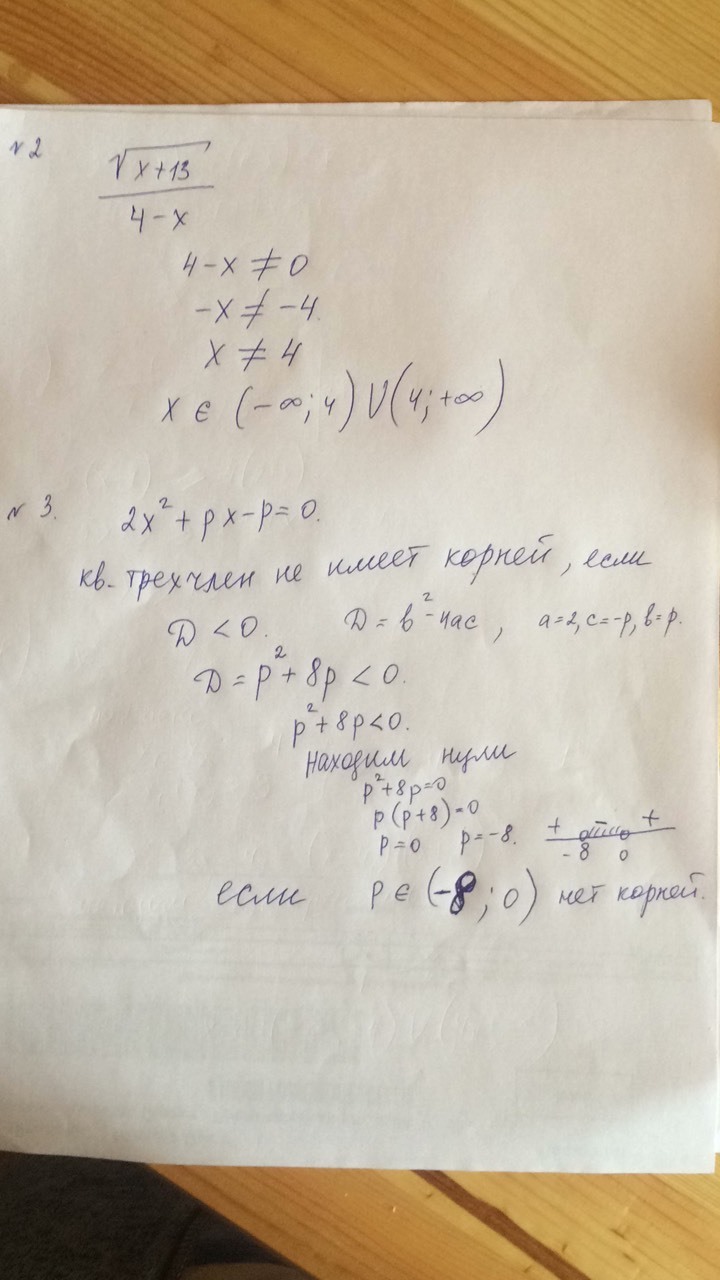 №2
√x+13
4-x
4-x ≠ 0
-x ≠ -4.
x ≠ 4
x ∈ (-∞; 4) U (4; +∞)
№ 3. 2x² + px - p = 0.
кв. трехчлен не имеет корней, если
D < 0. D = в² - 4ас, а=2, с=-р, в=р.
D = p² + 8p < 0.
p² + 8p < 0.
находим нули
p² + 8p = 0
p (p+8) = 0
p = 0 p = -8. + +
-8 0
если p ∈ (-8; 0) нет корней.